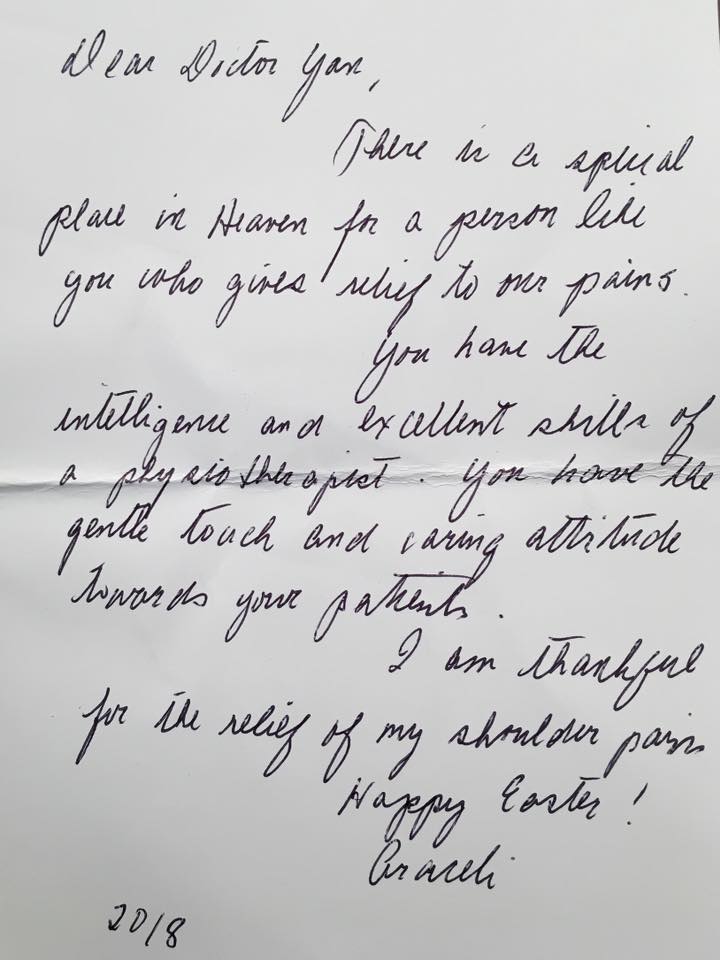 Dear Doctor Yan,
There is a special
place in Heaven for a person like
you who gives relief to our pains.
You have the
intelligence and excellent skills of
a physiotherapist. You have the
gentle touch and caring attitude
towards your patients.
I am thankful
for the relief of my shoulder pains
Happy Easter!
Araceli
2018